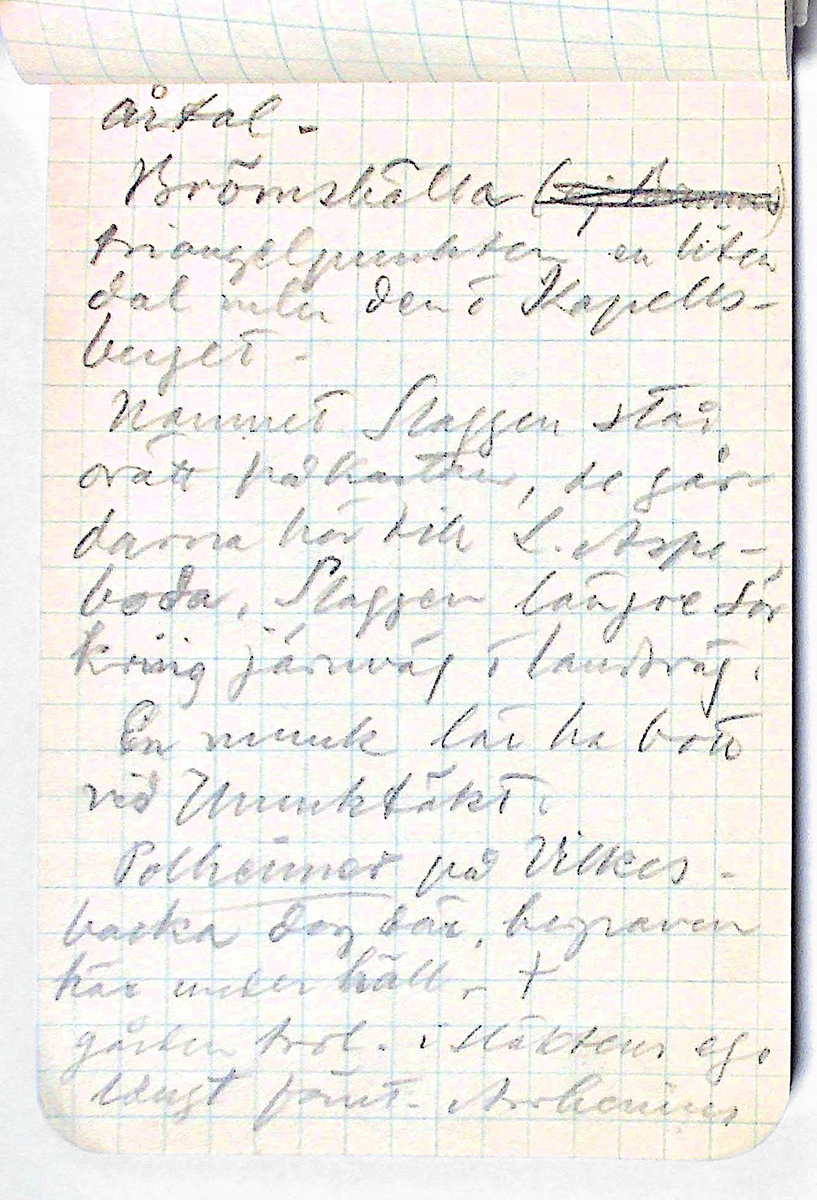 årtal -
Brömskälla (ej Broms)
triangelpunkten en liten
dal den i Kapells-
berget -
Namnet Slaggen står
orätt på kartan, de går-
darna hör till L. Aspe-
boda, Slaggen längre där
kring järnväg i landsväg.
En munk lär ha bott
vid Munktäkt.
Polheimer på Vilkes-
backa dog där, begraven
här under häll. †
gården trol. i släktens ego
långt förut. Arrhenius